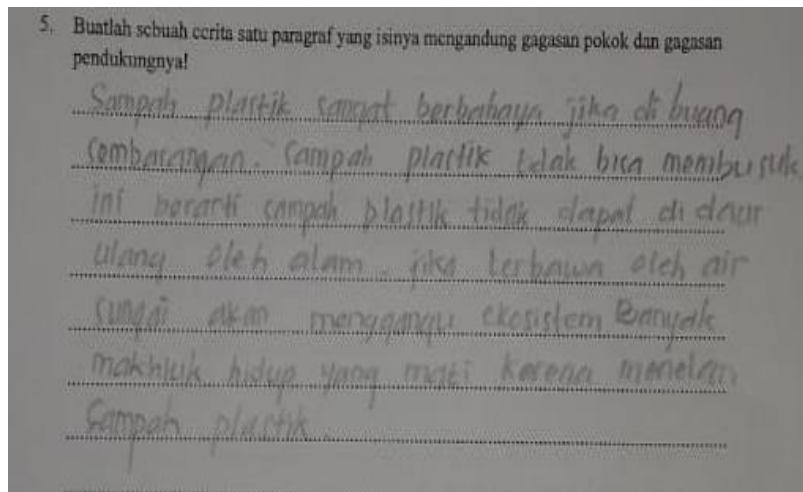 5. Buatlah sebuah cerita satu paragraf yang isinya mengandung gagasan pokok dan gagasan
pendukungnya!
Sampah plastik sangat berbahaya jika di buang
sembarangan. Sampah plastik tidak bisa membusuk,
ini berarti sampah plastik tidak dapat di daur
ulang oleh alam. jika terbawa oleh air
sungai akan mengganggu ekosistem Banyak
makhluk hidup yang mati karena menelan
Sampah plastik.